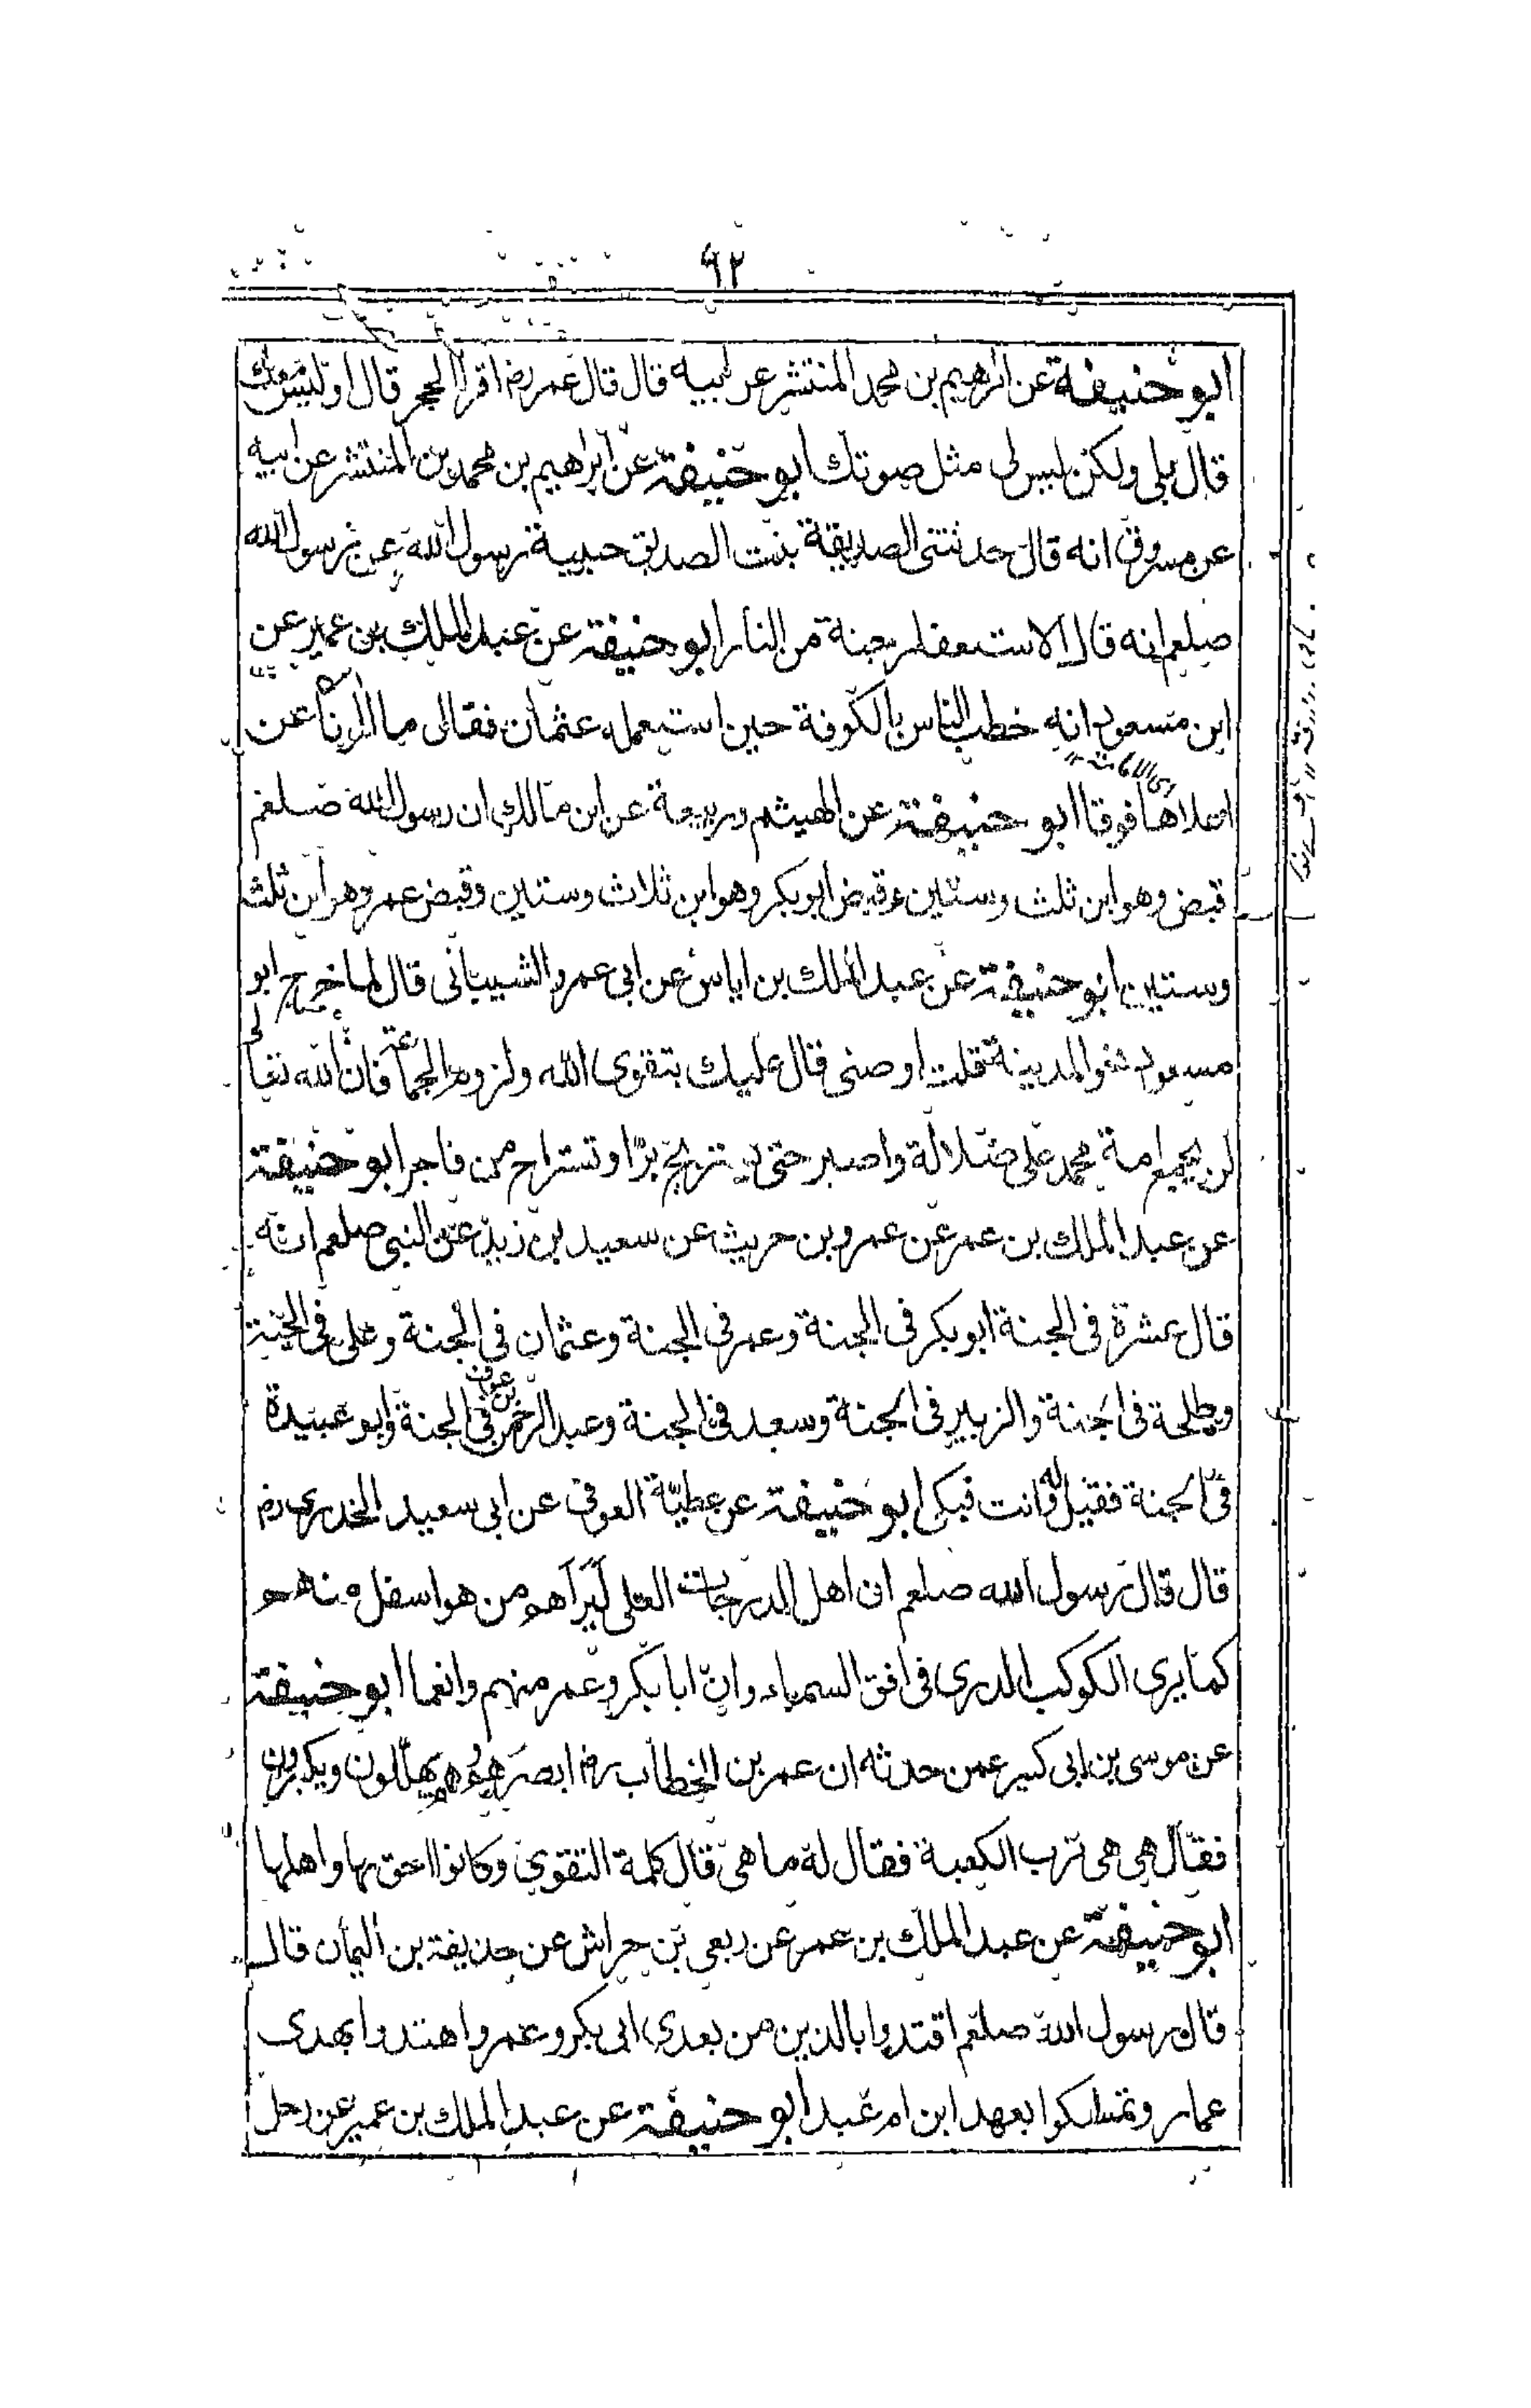 ٩٢
ابو حنيفة عن ابرهيم بن محمد المنتشر عن ابيه قال قال عمر رضـ اقرأ الحجر قال اوليس معك
قال بلى ولكن ليس لى مثل صوتك ابو حنيفة عن ابراهيم بن محمد بن المنتشر عن ابيه
عن مسروق انه قال حدثتنى الصديقة بنت الصديق حبيبة رسول الله عن رسول الله
صلعم انه قال من النار ابو حنيفة عن عبد الملك بن عمير عن
ابن مسعود انه خطب الناس بالكوفة حين استعمل عثمان فقال ما عن
اعلاها فوقا ابو حنيفة عن الهيثم وربيعة عن ابن مالك ان رسول الله صلعم
قبض وهو ابن ثلث وستين وقبض ابو بكر وهو ابن ثلاث وستين وقبض عمر وهو ابن ثلث
وستين ابو حنيفة عن عبد الملك بن اياس عن ابى عمرو الشيبانى قال لما خرج ابو
مسعود نحو المدينة قلت اوصنى قال عليك بتقوى الله ولزوم الجماعة فان الله تعالى
لن يجمع امة محمد على ضلالة واصبر حتى يستريح برّ او تستراح من فاجر ابو حنيفة
عن عبد الملك بن عمر عن عمرو بن حريث عن سعيد بن زيد عن النبى صلعم انه
قال عشرة فى الجنة ابو بكر فى الجنة وعمر فى الجنة وعثمان فى الجنة وعلى فى الجنة
وطلحة فى الجنة والزبير فى الجنة وسعد فى الجنة وعبد الرحمن بن عوف فى الجنة وابو عبيدة
فى الجنة فقيل له وانت فبكى ابو حنيفة عن عطيّة العوفى عن ابى سعيد الخدرى رضـ
قال قال رسول الله صلعم ان اهل الدرجات العلى ليراهم من هو اسفل منهم
كما يرى الكوكب الدرى فى افق السماء وانّ ابا بكر وعمر منهم وانعما ابو حنيفة
عن موسى بن ابى كثير عمن حدثه ان عمر بن الخطاب رضـ ابصرهم وهم يهلّلون ويكبرون
فقال هى هى ورب الكعبة فقال له ما هى قال كلمة التقوى وكانوا احق بها واهلها
ابو حنيفة عن عبد الملك بن عمر عن ربعى بن حراش عن حذيفة بن اليمان قال
قال رسول الله صلعم اقتدوا بالذين من بعدى ابى بكر وعمر واهتدوا بهدى
عمار وتمسكوا بعهد ابن ام عبد ابو حنيفة عن عبد الملك بن عمير عن رجل